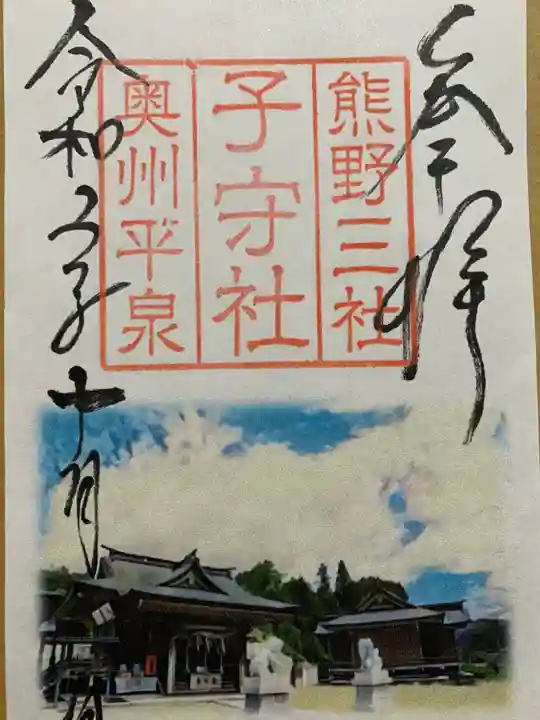 奉拝
熊野三社
子守社
奥州平泉
令和五年十月